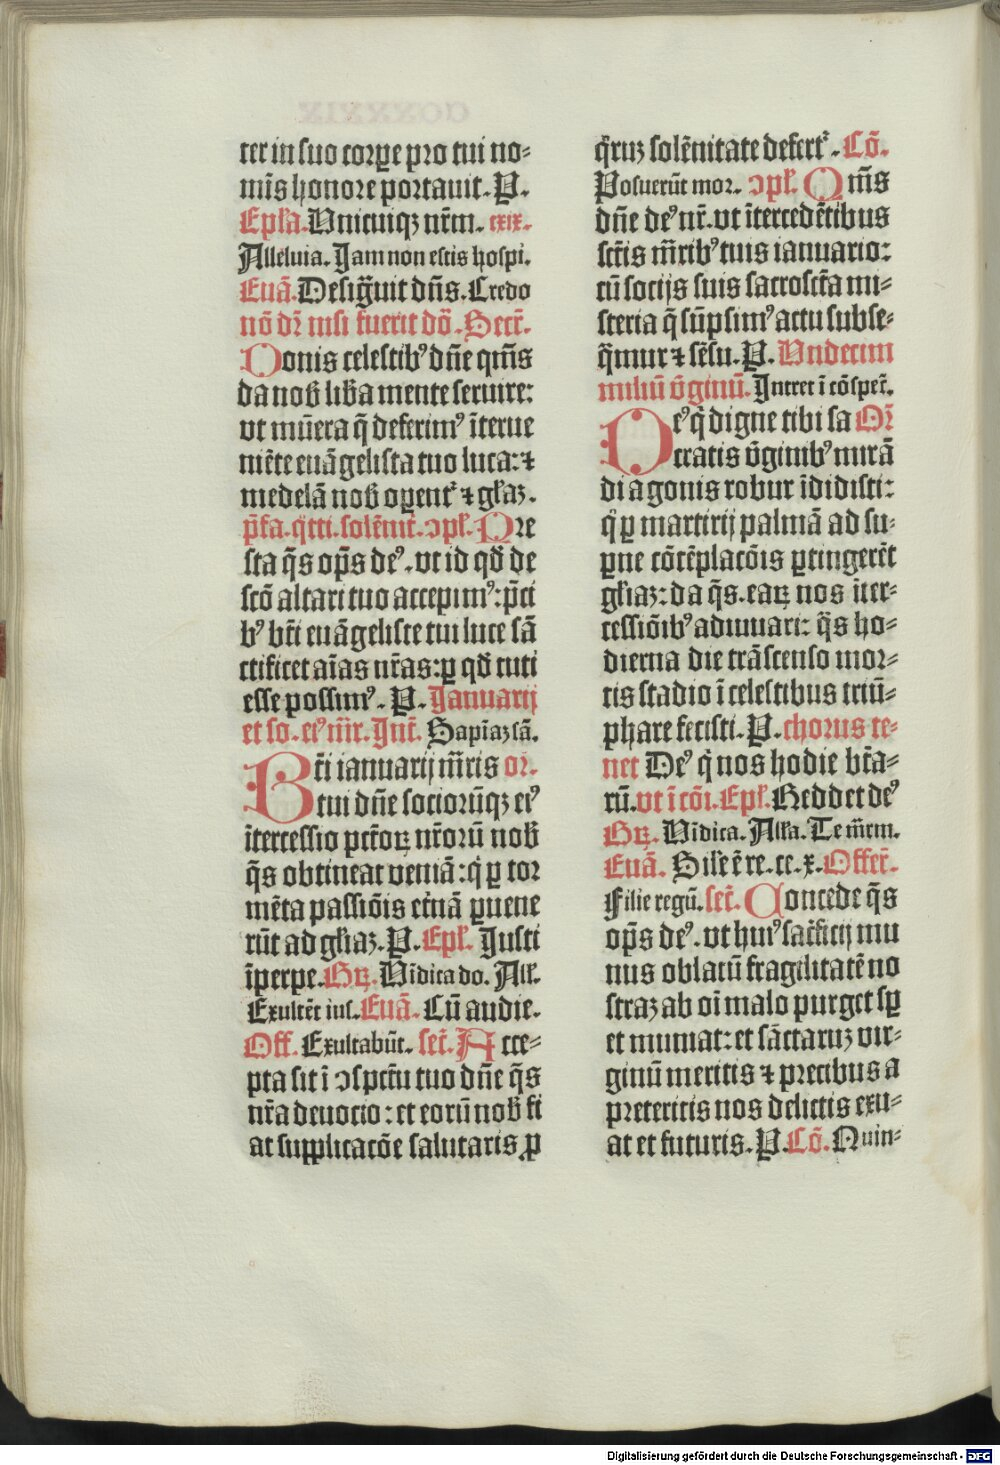 ter in suo corꝑe pro tui no⸗
mīs honore portauit. P.
Epl̄a. Vnicuiqꝫ nr̄m. cxix.
Alleluia. Jam non estis hospi.
Euā. Desiḡuit dn̄s. Credo
nō dr̄ nisi fuerit dō. Secr̄.
Donis celestibꝰ dn̄e qm̄s
da nob̄ lib̄a mente seruire:
vt mūera q̄ deferimꝰ īterue
niēte euāgelista tuo luca: ⁊
medelā nob̄ oꝑent᷑ ⁊ gl̄iaꝫ.
p̄fa. q̄tti. solēnit̄. ↄpl̄. Pre
sta q̄s op̄s deꝰ. vt id qd̄ de
scō altari tuo accepimꝰ: p̄ci
bꝰ bt̄i euāgeliste tui luce sā
ctificet aīas nr̄as: ꝑ qd̄ tuti
esse possimꝰ. P. Januarij
et so. eiꝰ mr̄. Int̄. Sapīaꝫ sā.
Bt̄i ianuarij mr̄is or̄.
tui dn̄e sociorūqꝫ eiꝰ
ītercessio pctōꝝ nr̄orū nob̄
q̄s obtineat veniā: q̄ ꝑ tor
mēta passiōis et̄nā ꝑuene
rūt ad gl̄iaꝫ. P. Epl̄. Justi
īperpe. Gꝝ. Vīdica do. All̄.
Exultēt ius. Euā. Cū audie.
Off. Exultabūt. secr̄. Acce⸗
pta sit ī ↄspctū tuo dn̄e q̄s
nr̄a deuocio: et eorū nob̄ fi
at supplicacōe salutaris ꝑ
q̄ruꝫ solēnitate defert᷑. Cō.
Posuerūt mor. ↄpl̄. Om̄s
dn̄e deꝰ nr̄. vt ītercedētibus
sct̄is mr̄ibꝰ tuis ianuario:
cū socijs suis sacroscta mi⸗
steria q̄ sūpsimꝰ actu subse⸗
q̄mur ⁊ sēsu. P. Vndecim
miliū v̄ginū. Intret ī cōsper̄.
Deꝰ q̄ digne tibi sa Or̄
cratis v̄ginibꝰ mirā
di agonis robur īdidisti:
q̄ ꝑ martirij palmā ad su⸗
ꝑne cōtēplacōis ꝑtingerēt
gl̄iaꝫ: da q̄s. eaꝝ nos īter⸗
cessiōibꝰ adiuuari: q̄s ho⸗
dierna die trāscenso mor⸗
tis stadio ī celestibus triū⸗
phare fecisti. P. chorus te⸗
net Deꝰ q̄ nos hodie bt̄a⸗
rū. vt ī cōi. Epl̄. Reddet deꝰ
Gꝝ. Vīdica. All̄a. Te mr̄m.
Euā. Sil̄e ē re. ce. x. Offer̄.
Filie regū. secr̄. Concede q̄s
op̄s deꝰ. vt huiꝰ sacr̄ficij mu
nus oblatū fragilitatē no
straꝫ ab oī malo purget sꝑ
et muniat: et sāctaruꝫ vir⸗
ginū meritis ⁊ precibus a
preteritis nos delictis exu⸗
at et futuris. P. Cō. Quin⸗
Digitalisierung gefördert durch die Deutsche Forschungsgemeinschaft - DFG